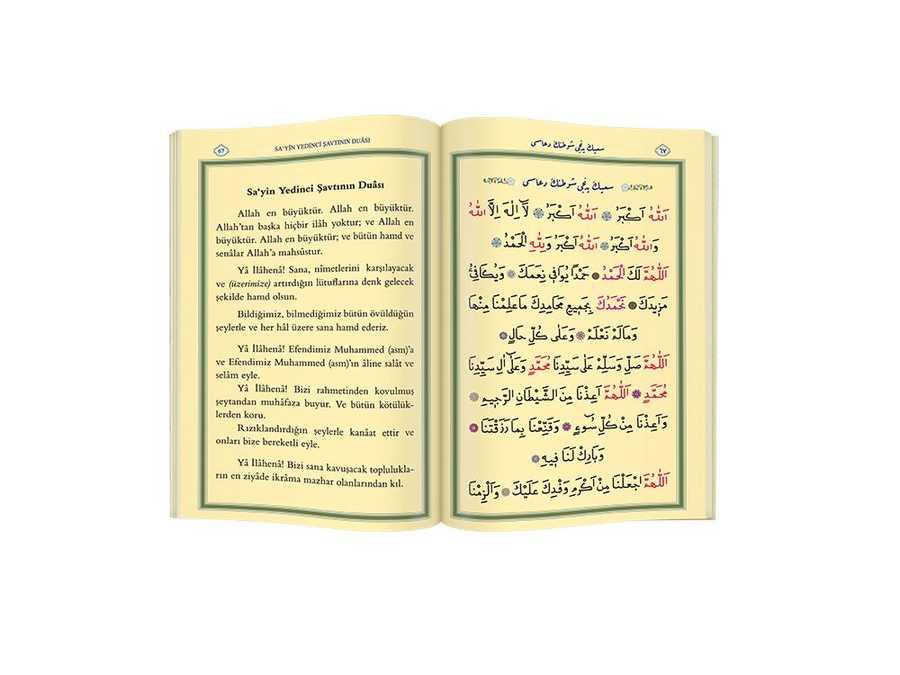 67
SA'YİN YEDİNCİ ŞAVTININ DUÂSI
Sa'yin Yedinci Şavtının Duâsı
Allah en büyüktür. Allah en büyüktür.
Allah'tan başka hiçbir ilâh yoktur; ve Allah en
büyüktür. Allah en büyüktür; ve bütün hamd ve
senâlar Allah'a mahsûstur.
Yâ İlâhenâ! Sana, nîmetlerini karşılayacak
ve (üzerimize) artırdığın lütuflarına denk gelecek
şekilde hamd olsun.
Bildiğimiz, bilmediğimiz bütün övüldüğün
şeylerle ve her hâl üzere sana hamd ederiz.
Yâ İlâhenâ! Efendimiz Muhammed (asm)'a
ve Efendimiz Muhammed (asm)'ın âline salât ve
selâm eyle.
Yâ İlâhenâ! Bizi rahmetinden kovulmuş
şeytandan muhâfaza buyur. Ve bütün kötülük-
lerden koru.
Rızıklandırdığın şeylerle kanâat ettir ve
onları bize bereketli eyle.
Yâ İlâhenâ! Bizi sana kavuşacak toplulukla-
rın en ziyâde ikrâma mazhar olanlarından kıl.
سعيك يدنجى شوطنك دعاسى
٦٧
سعيك يدنجى شوطنك دعاسى
اَللّٰهُ اَكْبَرُ اَللّٰهُ اَكْبَرُ لَٓا اِلٰهَ اِلَّا اللّٰهُ
وَاللّٰهُ اَكْبَرُ اَللّٰهُ اَكْبَرُ وَلِلّٰهِ الْحَمْدُ
اَللّٰهُمَّ لَكَ الْحَمْدُ حَمْدًا يُوَافِى نِعَمَكَ وَيُكَافِئُ
مَزِيدَكَ نَحْمَدُكَ بِجَمِيعِ مَحَامِدِكَ مَاعَلِمْنَا مِنْهَا
وَمَالَمْ نَعْلَمْ وَعَلٰى كُلِّ حَالٍ
اَللّٰهُمَّ صَلِّ وَسَلِّمْ عَلٰى سَيِّدِنَا مُحَمَّدٍ وَعَلٰٓى اٰلِ سَيِّدِنَا
مُحَمَّدٍ اَللّٰهُمَّ اَعِذْنَا مِنَ الشَّيْطَانِ الرَّجِيمِ
وَاَعِذْنَا مِنْ كُلِّ سُوءٍ وَقَنِّعْنَا بِمَا رَزَقْتَنَا
وَبَارِكْ لَنَا فِيهِ
اَللّٰهُمَّ اجْعَلْنَا مِنْ اَكْرَمِ وَفْدِكَ عَلَيْكَ وَاَلْزِمْنَا